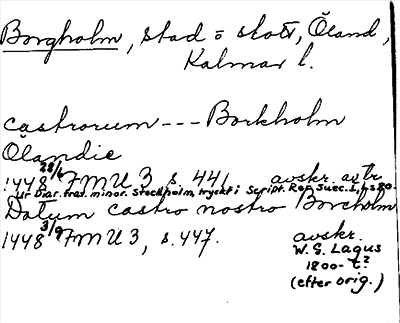 Borgholm, stad o slott, Öland,
Kalmar l.
castrorum --- Borkholm
Ölandie
1448 28/6 FMU 3 s. 441. avskr. av tr.
ur Diar. frat. minor. Stockholm, tryckt i Script. Rer. Suec. I,
Datum castro nostro Borcholm
1448 3/9 FMU 3, s. 447. avskr.
W. G. Lagus
1800-t?
(efter orig.)